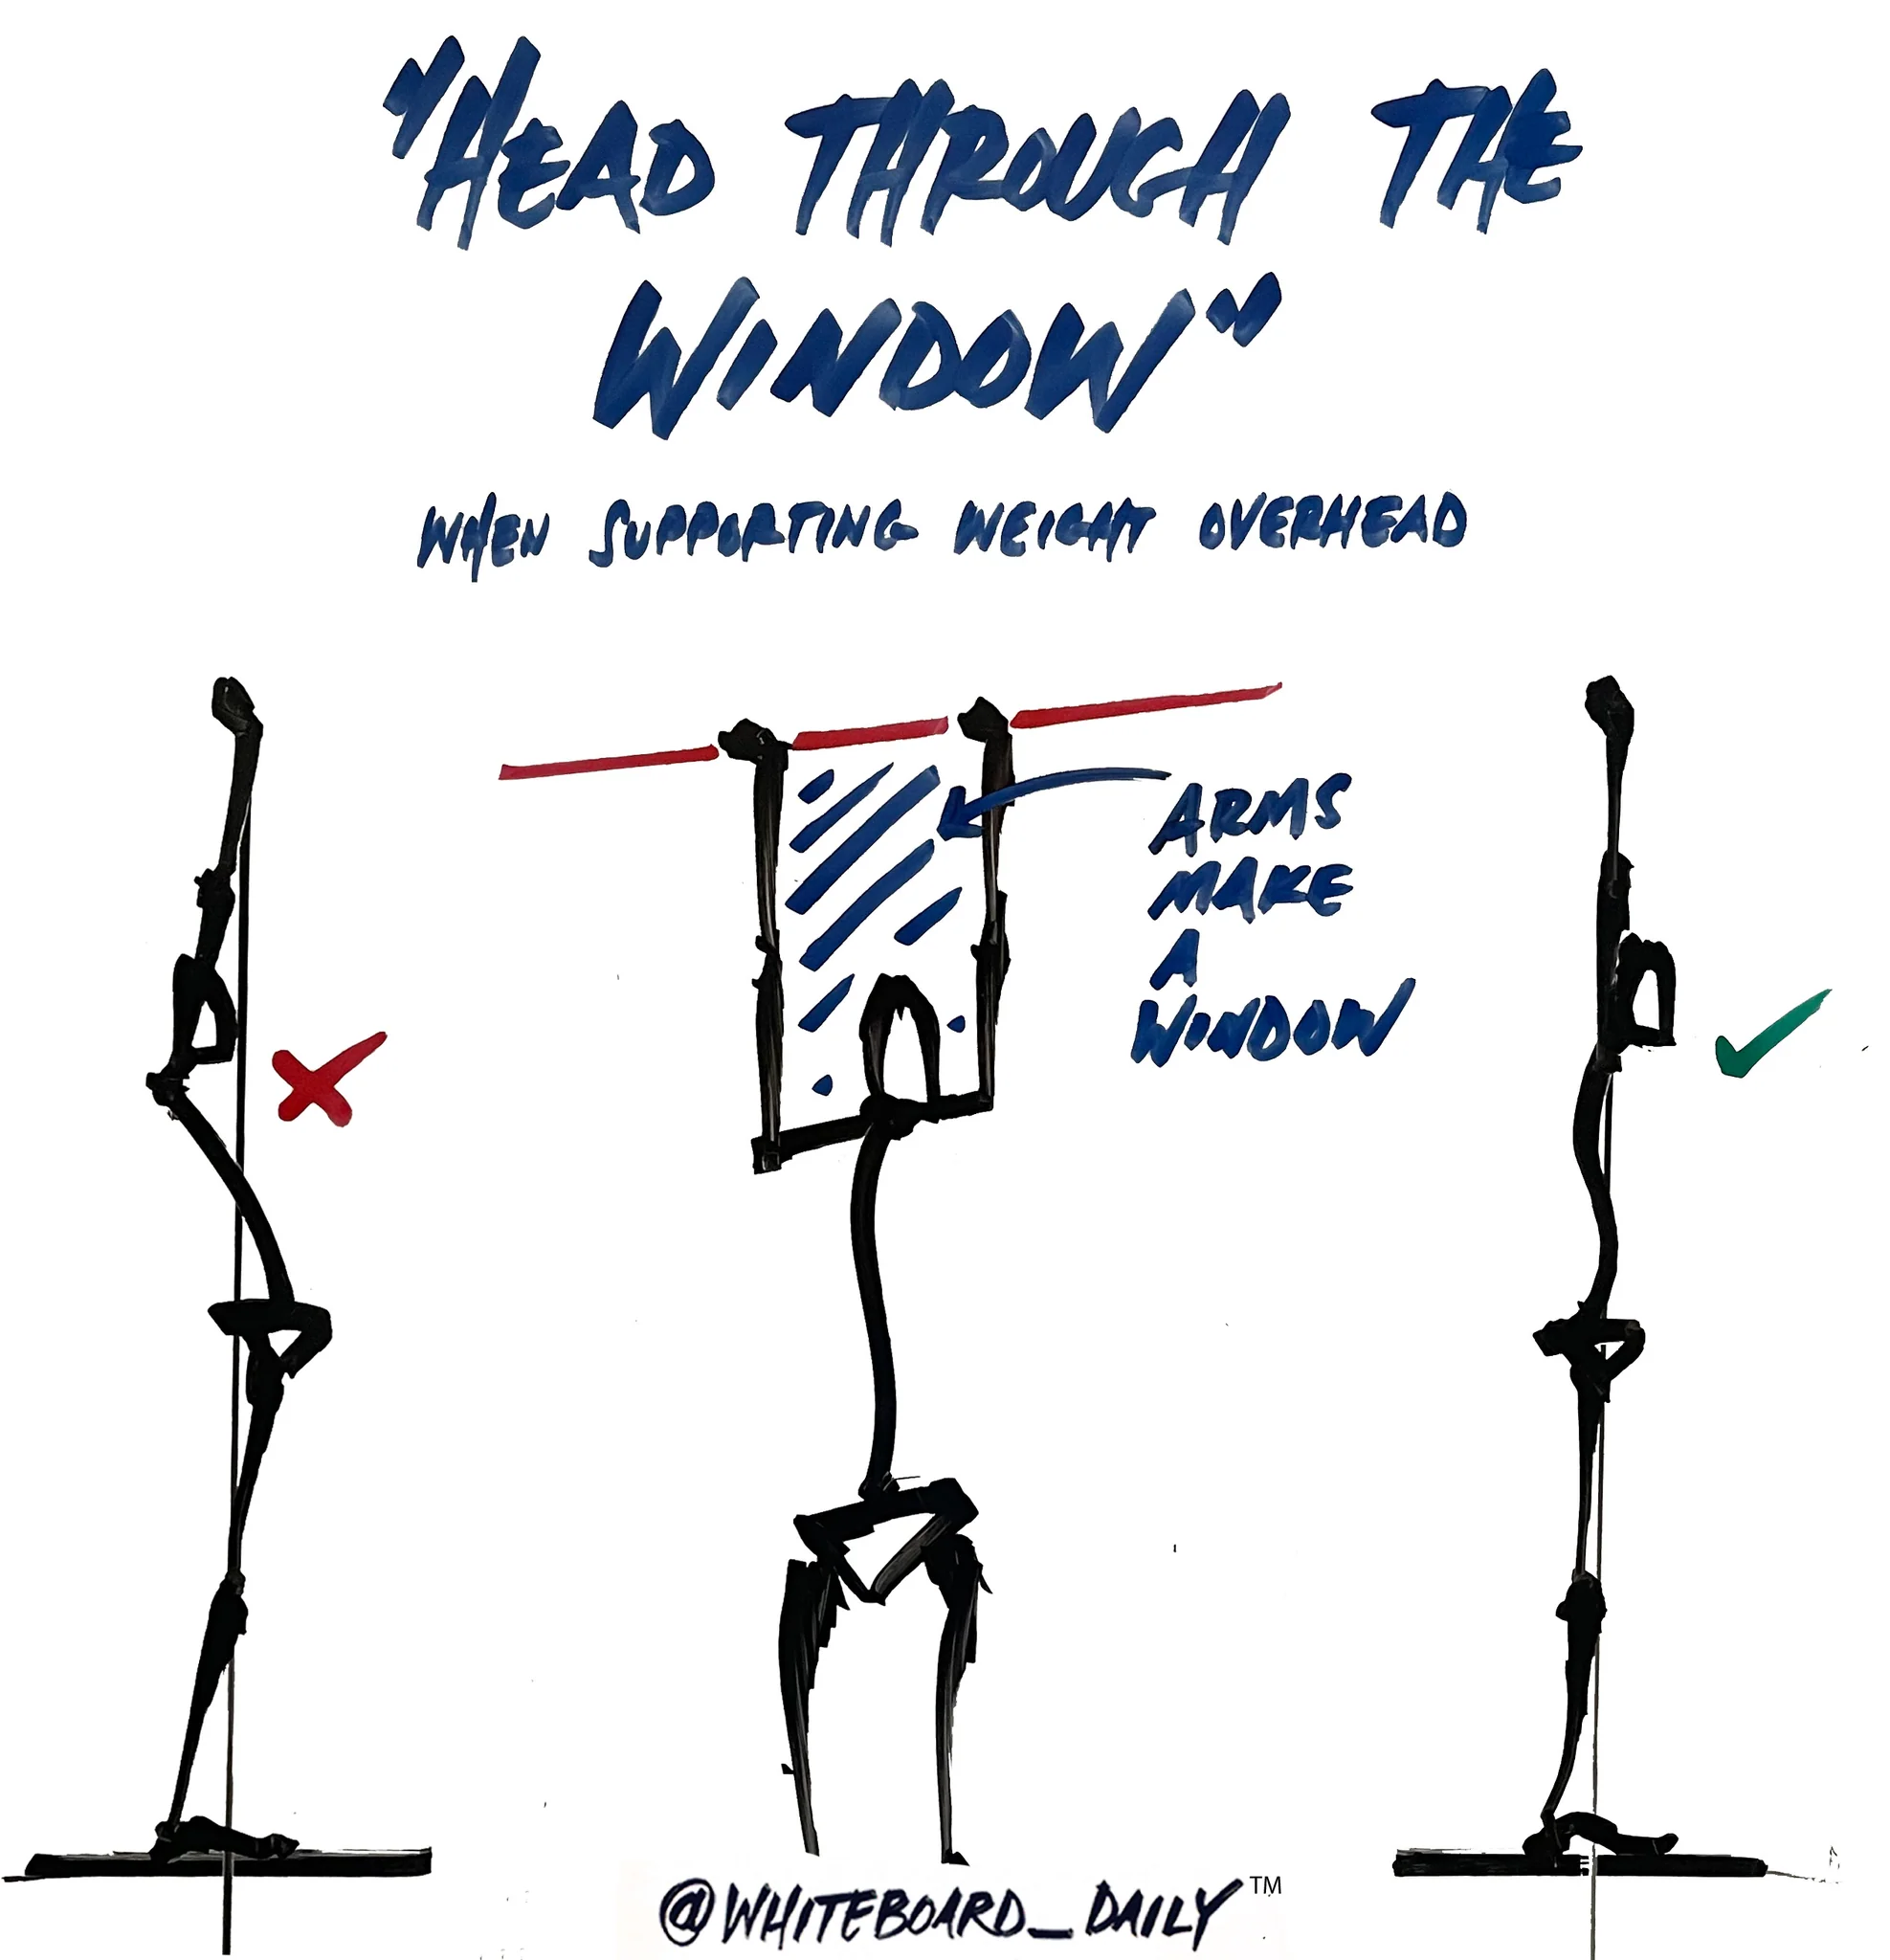 "HEAD THROUGH THE
WINDOW"
WHEN SUPPORTING WEIGHT OVERHEAD
ARMS
MAKE
A
WINDOW
@WHITEBOARD_DAILY™